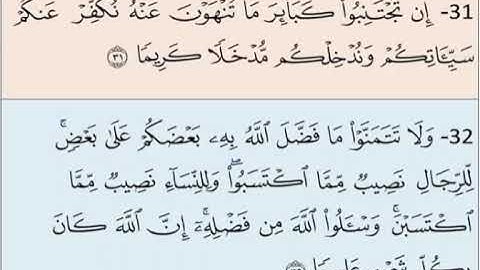 31- إِن تَجْتَنِبُوا۟ كَبَآئِرَ مَا تُنْهَوْنَ عَنْهُ نُكَفِّرْ عَنكُمْ
سَيِّـَٔاتِكُمْ وَنُدْخِلْكُم مُّدْخَلًا كَرِيمًا ﴿٣١﴾
32- وَلَا تَتَمَنَّوْا۟ مَا فَضَّلَ ٱللَّهُ بِهِۦ بَعْضَكُمْ عَلَىٰ بَعْضٍ ۚ
لِّلرِّجَالِ نَصِيبٌ مِّمَّا ٱكْتَسَبُوا۟ ۖ وَلِلنِّسَآءِ نَصِيبٌ مِّمَّا
ٱكْتَسَبْنَ ۚ وَسْـَٔلُوا۟ ٱللَّهَ مِن فَضْلِهِۦٓ ۗ إِنَّ ٱللَّهَ كَانَ